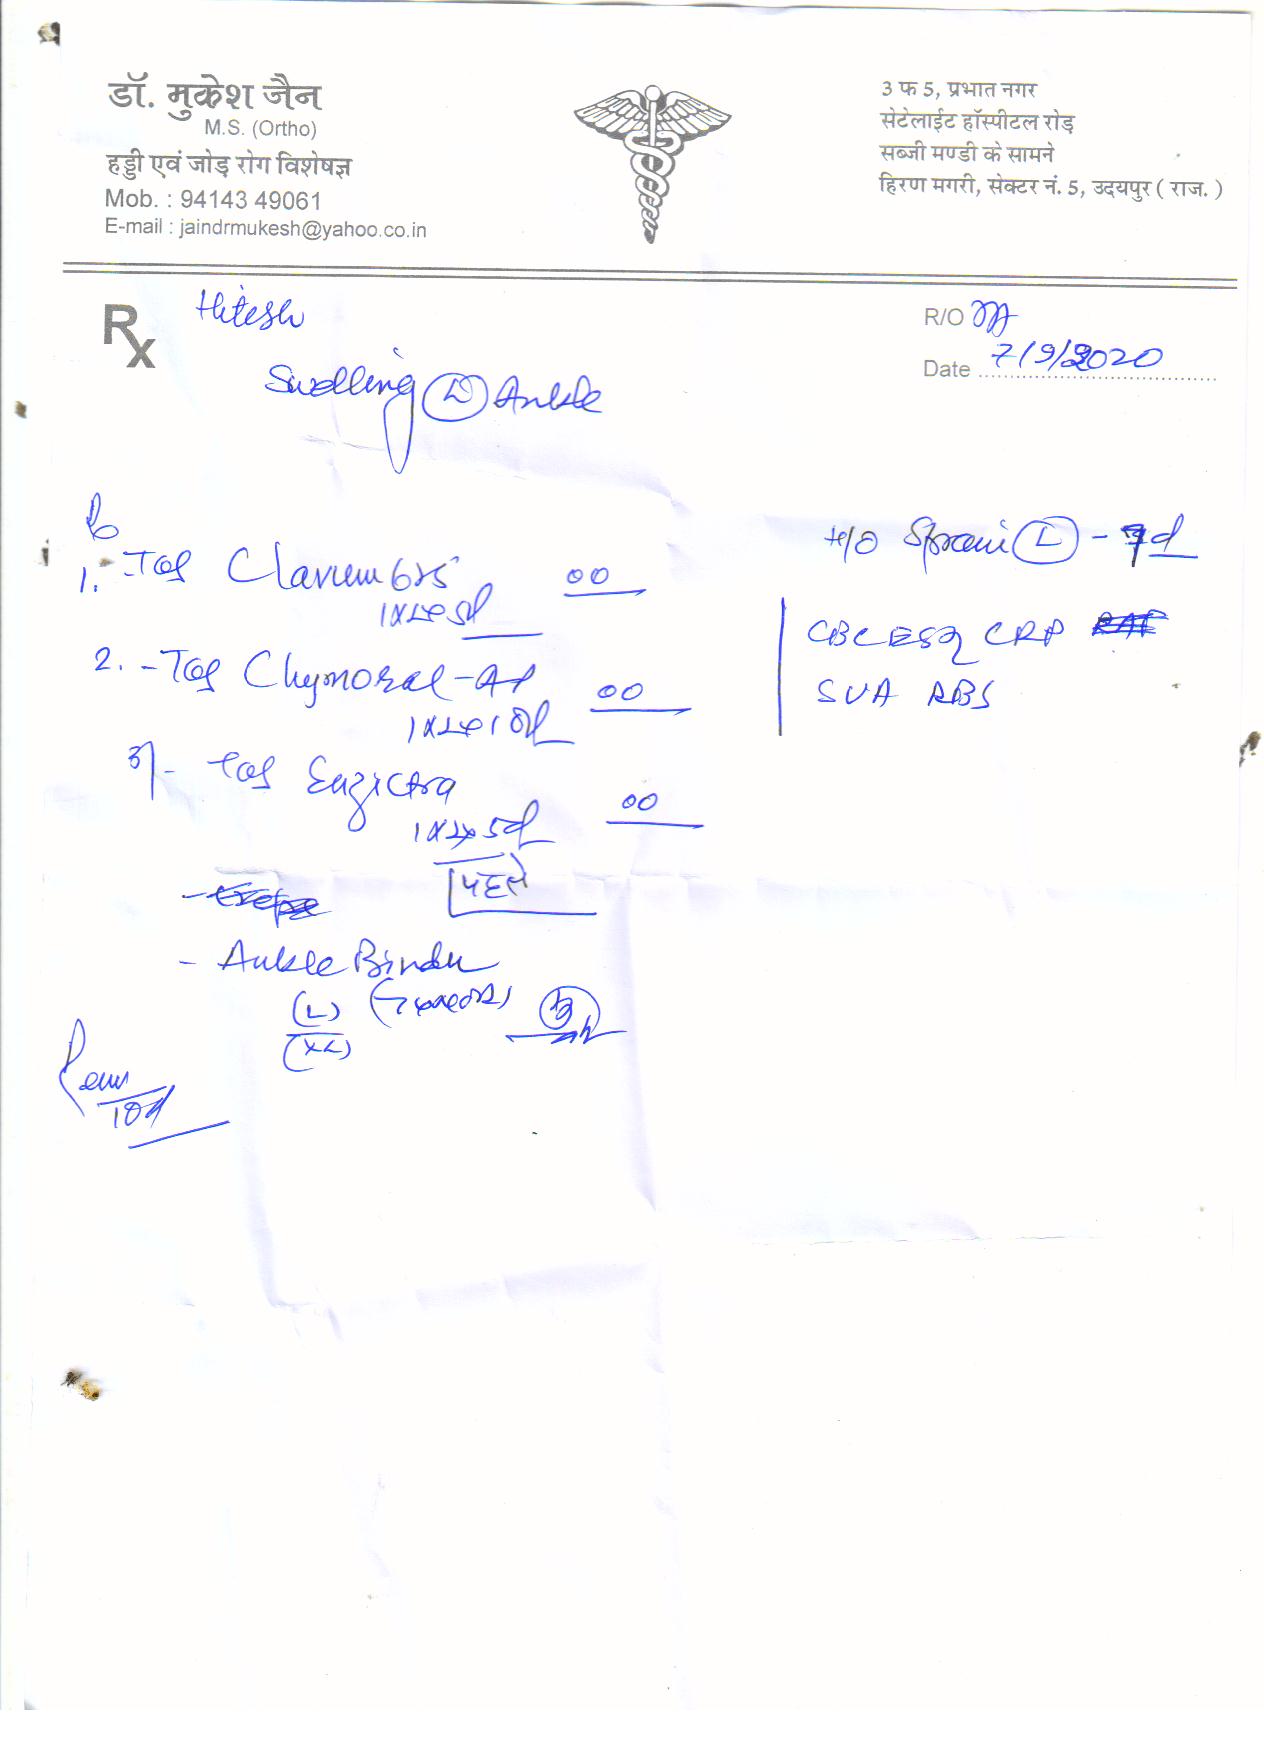 डॉ. मुकेश जैन
M.S. (Ortho)
हड्डी एवं जोड़ रोग विशेषज्ञ
Mob. : 94143 49061
E-mail : jaindrmukesh@yahoo.co.in
3 फ 5, प्रभात नगर
सेटेलाईट हॉस्पीटल रोड़
सब्जी मण्डी के सामने
हिरण मगरी, सेक्टर नं. 5, उदयपुर ( राज. )
Rx
Hitesh
R/O
Date 7/9/2020
Swelling (L) Ankle
H/O Sprain (L) - 7d
1. - Tab Clavum 625 00
1x2x5d
2. - Tab Chymoral-AP 00
1x2x10d
3) - Tab 00
1x2x5d
पहले
- Ankle Binder
(L)
(XL)
10d
CBC ESR CRP
SUA RBS